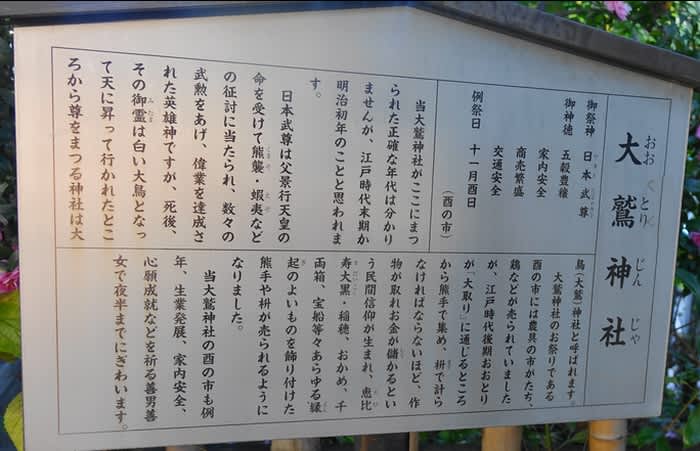 大鷲神社
おおとり じんじゃ
御祭神 日本武尊
御神徳 五穀豊穣
家内安全
商売繁盛
交通安全
例祭日 十一月酉日
(酉の市)
当大鷲神社がここにまつ
られた正確な年代は分かり
ませんが、江戸時代末期か
明治初年のことと思われま
す。
日本武尊は父景行天皇の
命を受けて熊襲・蝦夷など
の征討に当たられ、数々の
武勲をあげ、偉業を達成さ
れた英雄神ですが、死後、
その御霊は白い大鳥となっ
て天に昇って行かれたとこ
ろから尊をまつる神社は大
鳥(大鷲)神社と呼ばれます。
大鷲神社のお祭りである
酉の市には農具の市がたち、
鶏などが売られていました
が、江戸時代後期おおとり
が「大取り」に通じるところ
から熊手で集め、枡で計ら
なければならないほど、作
物が取れお金が儲かるとい
う民間信仰が生まれ、恵比
寿大黒・稲穂、おかめ、千
両箱、宝船等々あらゆる縁
起のよいものを飾り付けた
熊手や枡が売られるように
なりました。
当大鷲神社の酉の市も例
年、生業発展、家内安全、
心願成就などを祈る善男善
女で夜半までにぎわいます。